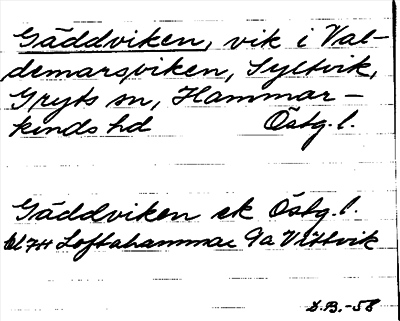 Gäddviken, vik i Val-
demarsviken, Syltvik,
Gryts sn, Hammar-
kinds hd Östg. l.
Gäddviken ek Östg. l.
Loftahammar 9a Vittvik
D.B.-58